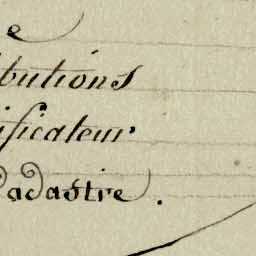 e
butions
ificateur
Cadastre.